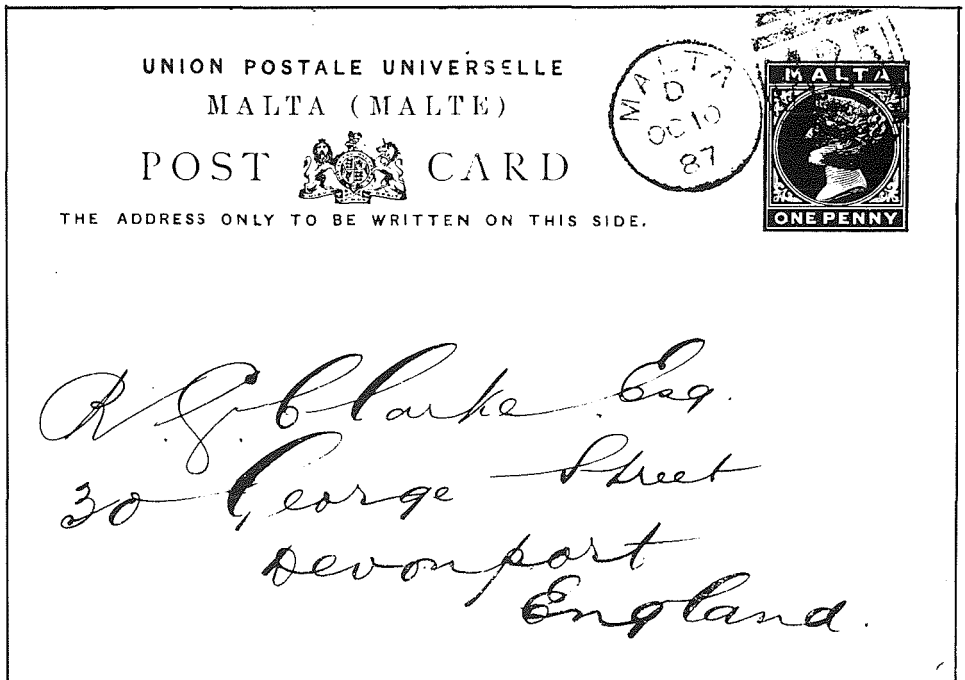 UNION POSTALE UNIVERSELLE
MALTA (MALTE)
POST CARD
THE ADDRESS ONLY TO BE WRITTEN ON THIS SIDE.
MALTA
D
OC 10
87
MALTA
ONE PENNY
R. G. Clarke Esq.
30 George Street
Devonport
England.